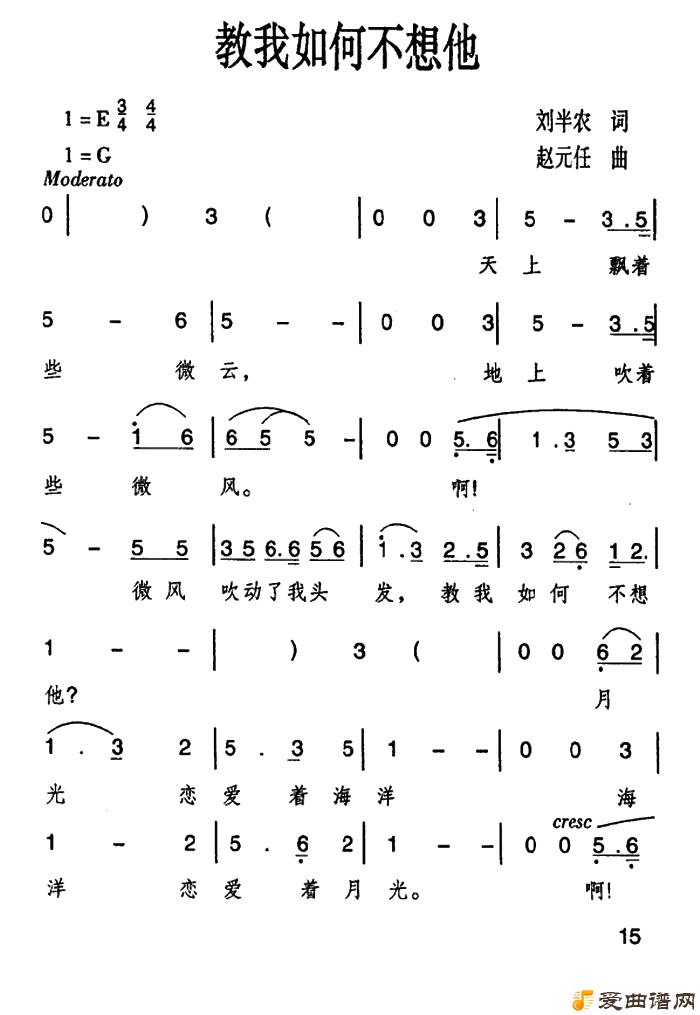 教我如何不想他
1=E 3/4 4/4
刘半农 词
1=G
赵元任 曲
Moderato
0 | ) 3 ( | 0 0 3 | 5 - 3.5 |
天 上 飘着
5 - 6 | 5 - - | 0 0 3 | 5 - 3.5 |
些 微 云, 地 上 吹着
5 - i 6 | 6 5 5 - | 0 0 5. 6 | 1 .3 5 3 |
些 微 风。 啊!
5 - 5 5 | 3 5 6.6 5 6 | i .3 2 .5 | 3 2 6 1 2. |
微 风 吹动了我头 发, 教 我 如 何 不 想
1 - - | ) 3 ( | 0 0 6 2 |
他? 月
1 . 3 2 | 5 . 3 5 | 1 - - | 0 0 3 |
光 恋 爱 着 海 洋 海
cresc
1 - 2 | 5 . 6 2 | 1 - - | 0 0 5 . 6 |
洋 恋 爱 着 月 光。 啊!
15
爱曲谱网